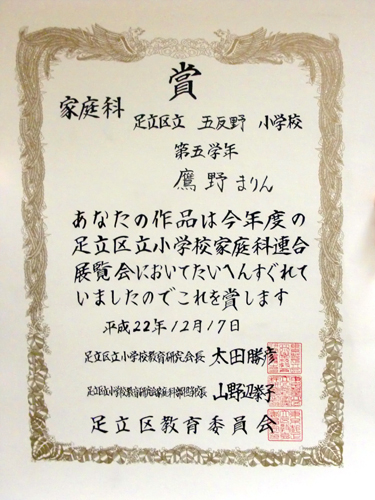 賞
家庭科
足立区立 五反野 小学校
第五学年
鷹野まりん
あなたの作品は今年度の
足立区立小学校家庭科連合
展覧会においてたいへんすぐれて
いましたのでこれを賞します
平成22年12月17日
足立区立小学校教育研究会長 太田勝彦
足立区立小学校教育研究会家庭科部担当校長 山野辺泰子
足立区教育委員会